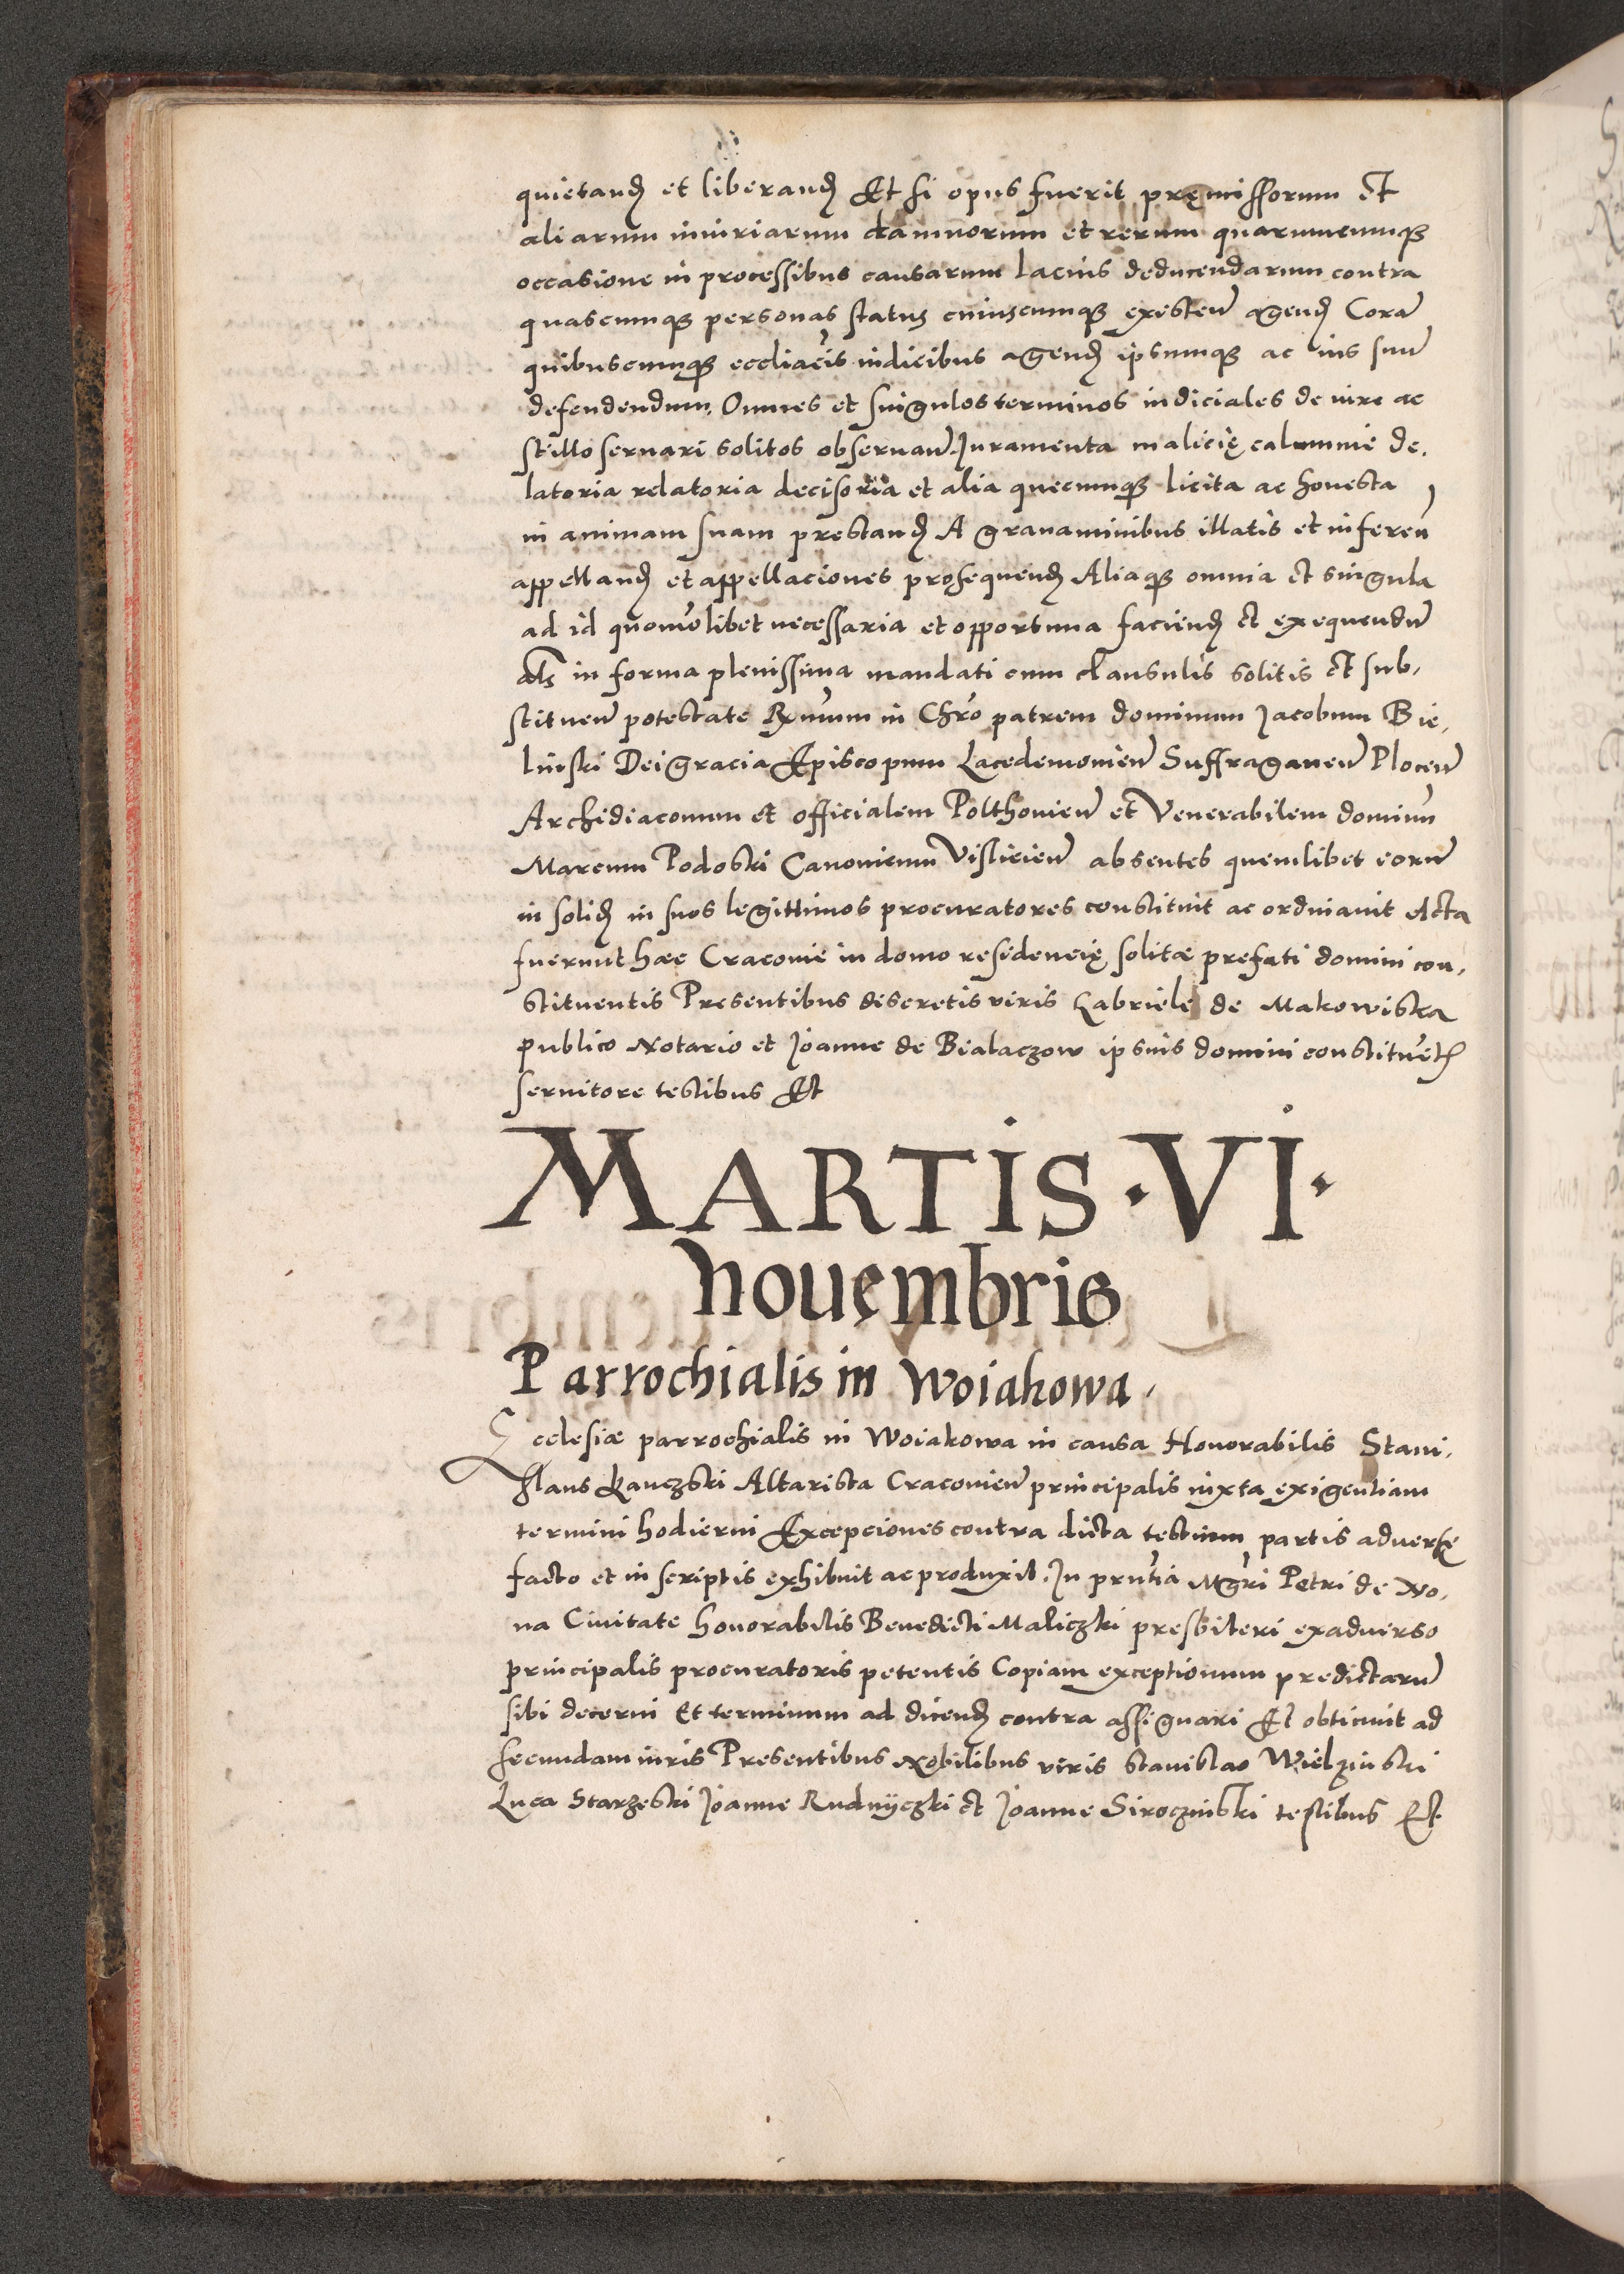 quietand et liberand Et si opus fuerit pręmissorum et
aliarum iniuriarum damnorum et rerum quarumcumq3
occasione in processibus causarum lacius deducendarum contra
quascumq3 personas status cuiuscumq3 existen̄ agend Corā
quibuscumq3 eccliacis iudicibus agend ipsumq3 ac ius suū
defendendum, Omnes et singulos terminos iudiciales de iure ac
stillo seruari solitos obseruan̄. Iuramenta malicię calumnie de,
latoria relatoria decisoria et alia quecumq3 licita ac honesta
in animam suam prestand A grauaminibus illatis et inferen̄
appelland et appellaciones prosequend Aliaq3 omnia et singula
ad id quomōlibet necessaria et opportuna faciend et exequendū
als in forma plenissima mandati cum clausulis solitis et sub,
stituen̄ potestate Rn̄um in Chrō patrem dominum Jacobum Bie,
linski Dei gracia Episcopum Lacedemonien̄ Suffraganeū Plocen̄
Archidiaconum et officialem Polthouien̄ et Venerabilem dominū
Marcum Podoski Canonicum Vislicien̄ absentes quemlibet eorū
in solid in suos legittimos procuratores constituit ac ordinauit Acta
fuerunt hæc Cracouie in domo residencię solitæ prefati domini con,
stituentis Presentibus discretis viris Gabriele de Makowiska
publico Notario et Joanne de Bialaczow ipsius domini constituētis
seruitore testibus Et
MARTIS · VI ·
nouembris
Parrochialis in Woiakowa,
Ecclesiæ parrochialis in Woiakowa in causa Honorabilis Stani,
slaus Altarista Cracouien̄ principalis iuxta exigentiam
termini hodierni Excepciones contra dicta testium partis aduersę
facto et in scriptis exhibuit ac produxit. In pn̄tia Mgrī Petri de No,
ua Ciuitate honorabilis Benedicti Maliczki presbiteri exaduerso
principalis procuratoris petentis Copiam exceptionum predictarū
sibi decerni Et terminum ad dicend contra assignari Et obtinuit ad
secundam iuris Presentibus Nobilibus viris Stanislao Wielzinski
Luca Starzeski Joanne Rudnyczki et Joanne Siroczinski testibus Et